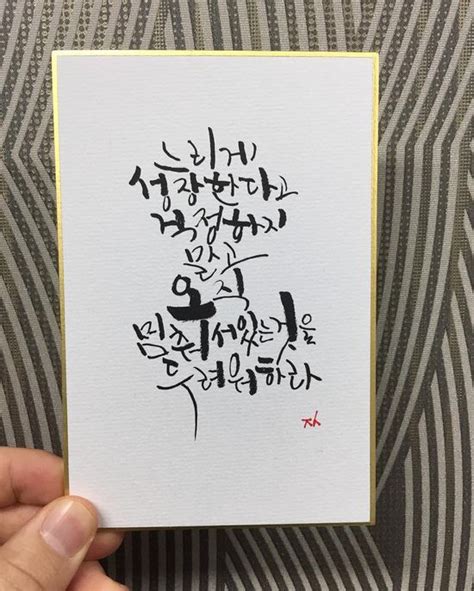 느리게
성장한다고
걱정하지
말고
오직
멈춰서있는것을
두려워하라